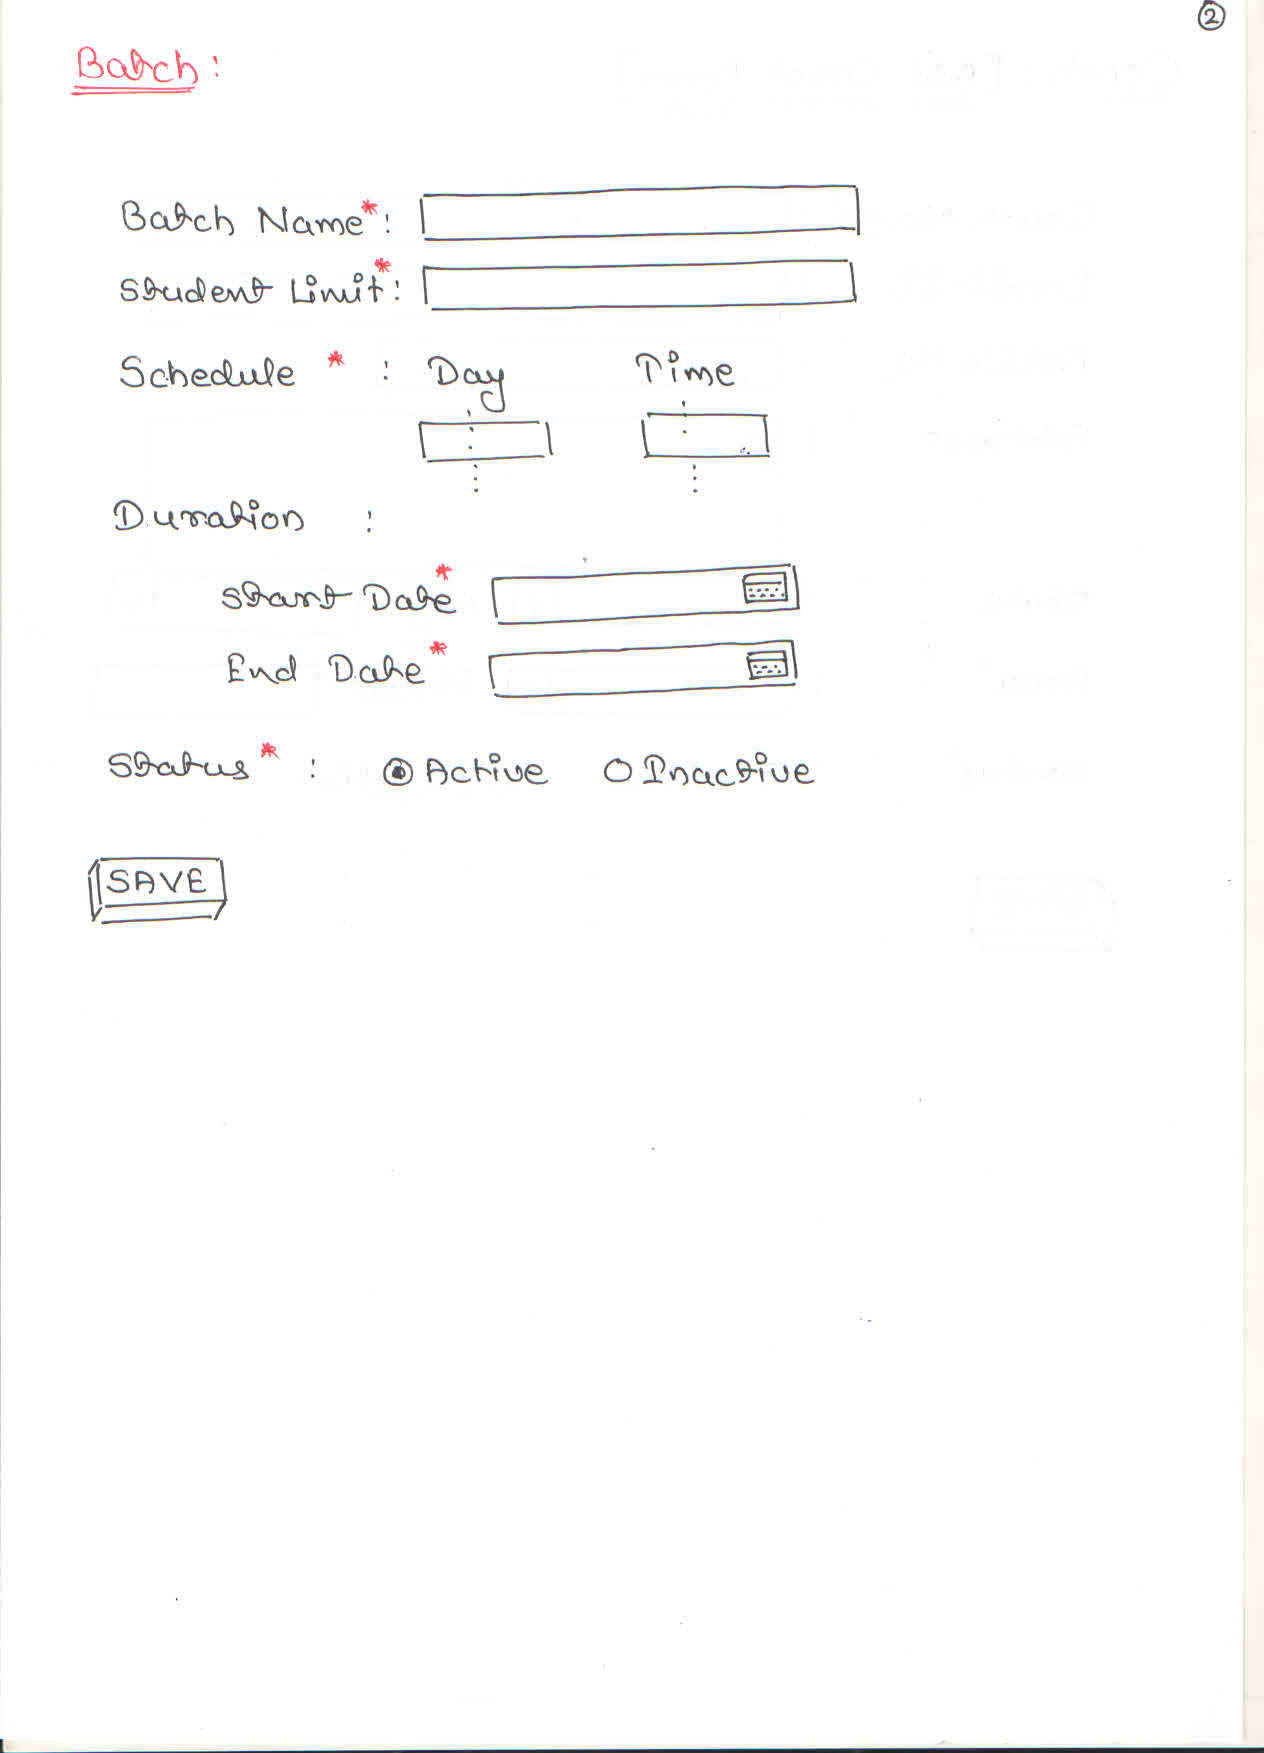 2
Batch :
Batch Name* :
Student Limit* :
Schedule * : Day Time
Duration :
Start Date*
End Date*
Status* : Active Inactive
SAVE